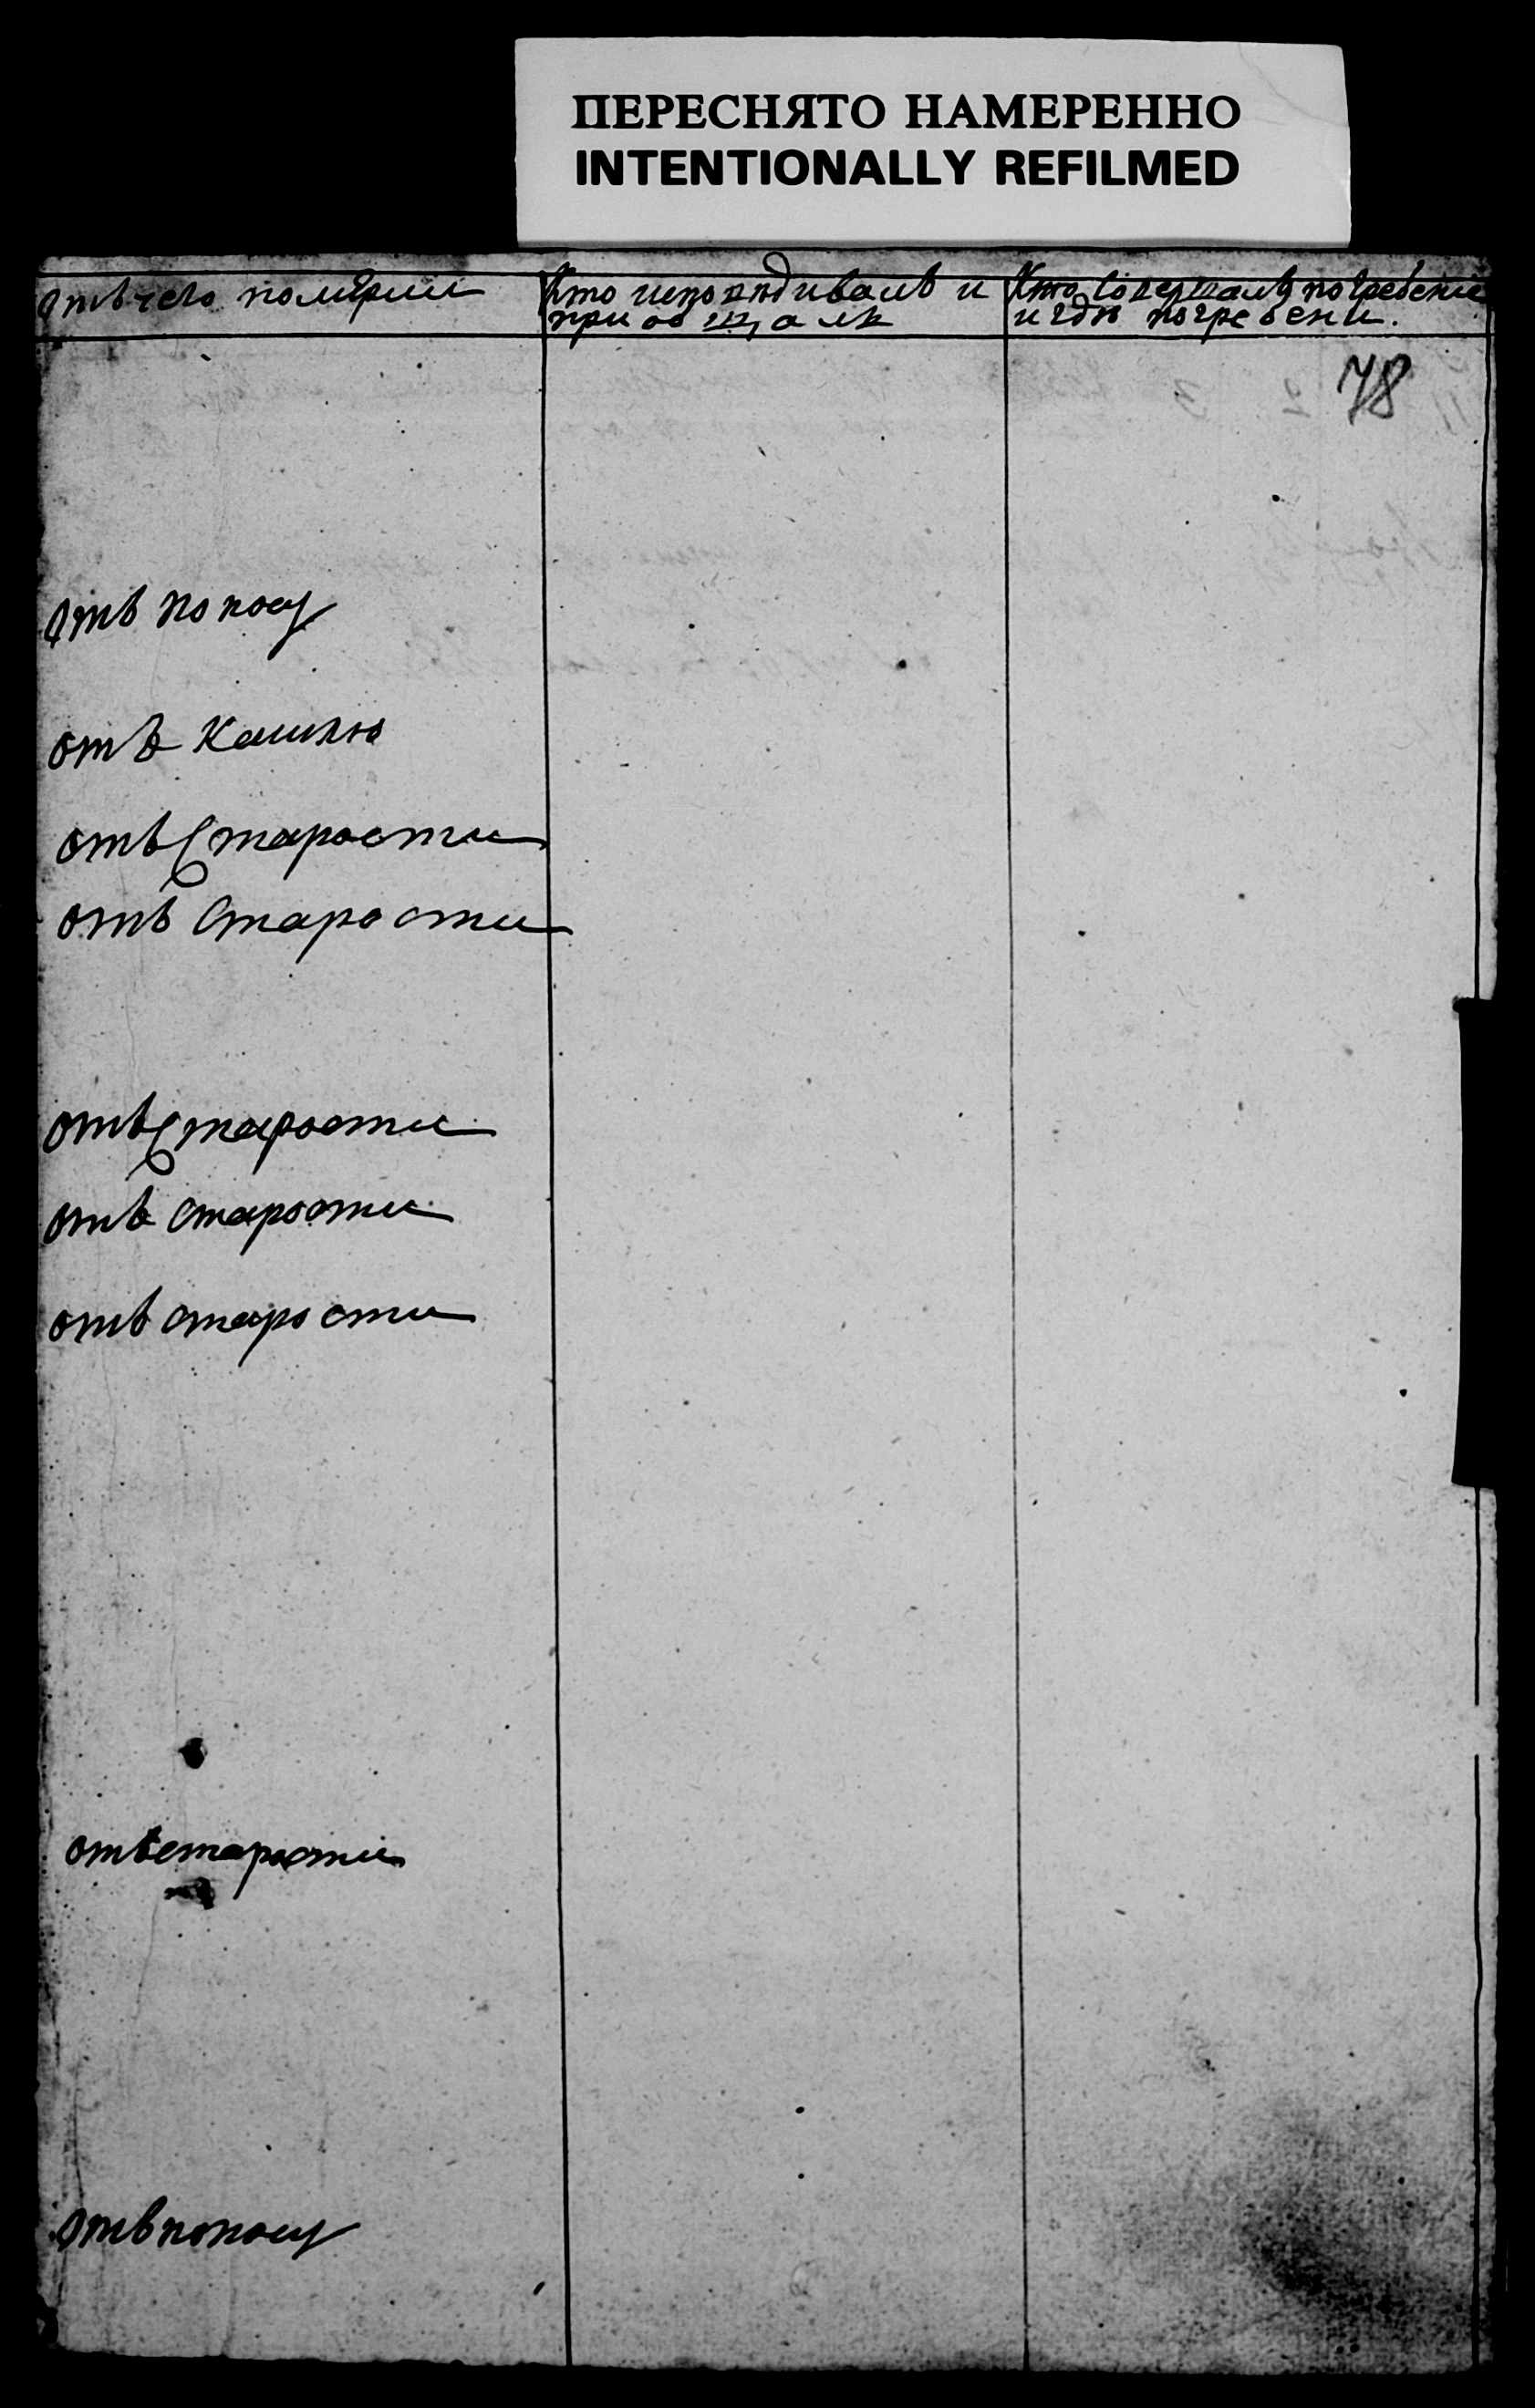 ПЕРЕСНЯТО НАМЕРЕННО
INTENTIONALLY REFILMED
Отъ чего померли
Кто исповѣдивалъ и
приобщалъ
Кто совершалъ погребение
и гдѣ погребени.
78
Отъ поносу
отъ Кашлю
отъ Старости
отъ Старости
отъ Старости
отъ старости
отъ старости
отъ старости
отъ поносу